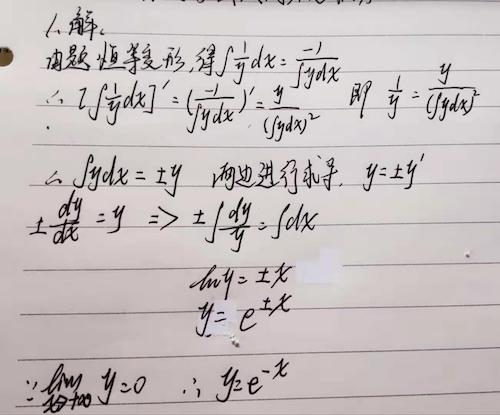 1. 解:
由题恒等变形,得∫1/y dx = -1/∫ydx
∴ [∫1/y dx]' = (-1/∫ydx)' = y/(∫ydx)² 即 1/y = y/(∫ydx)²
∴ ∫ydx = ±y 两边进行求导, y = ±y'
± dy/dx = y => ±∫dy/y = ∫dx
lny = ±x
y = e^±x
∵ lim x→+∞ y=0 ∴ y=e^-x